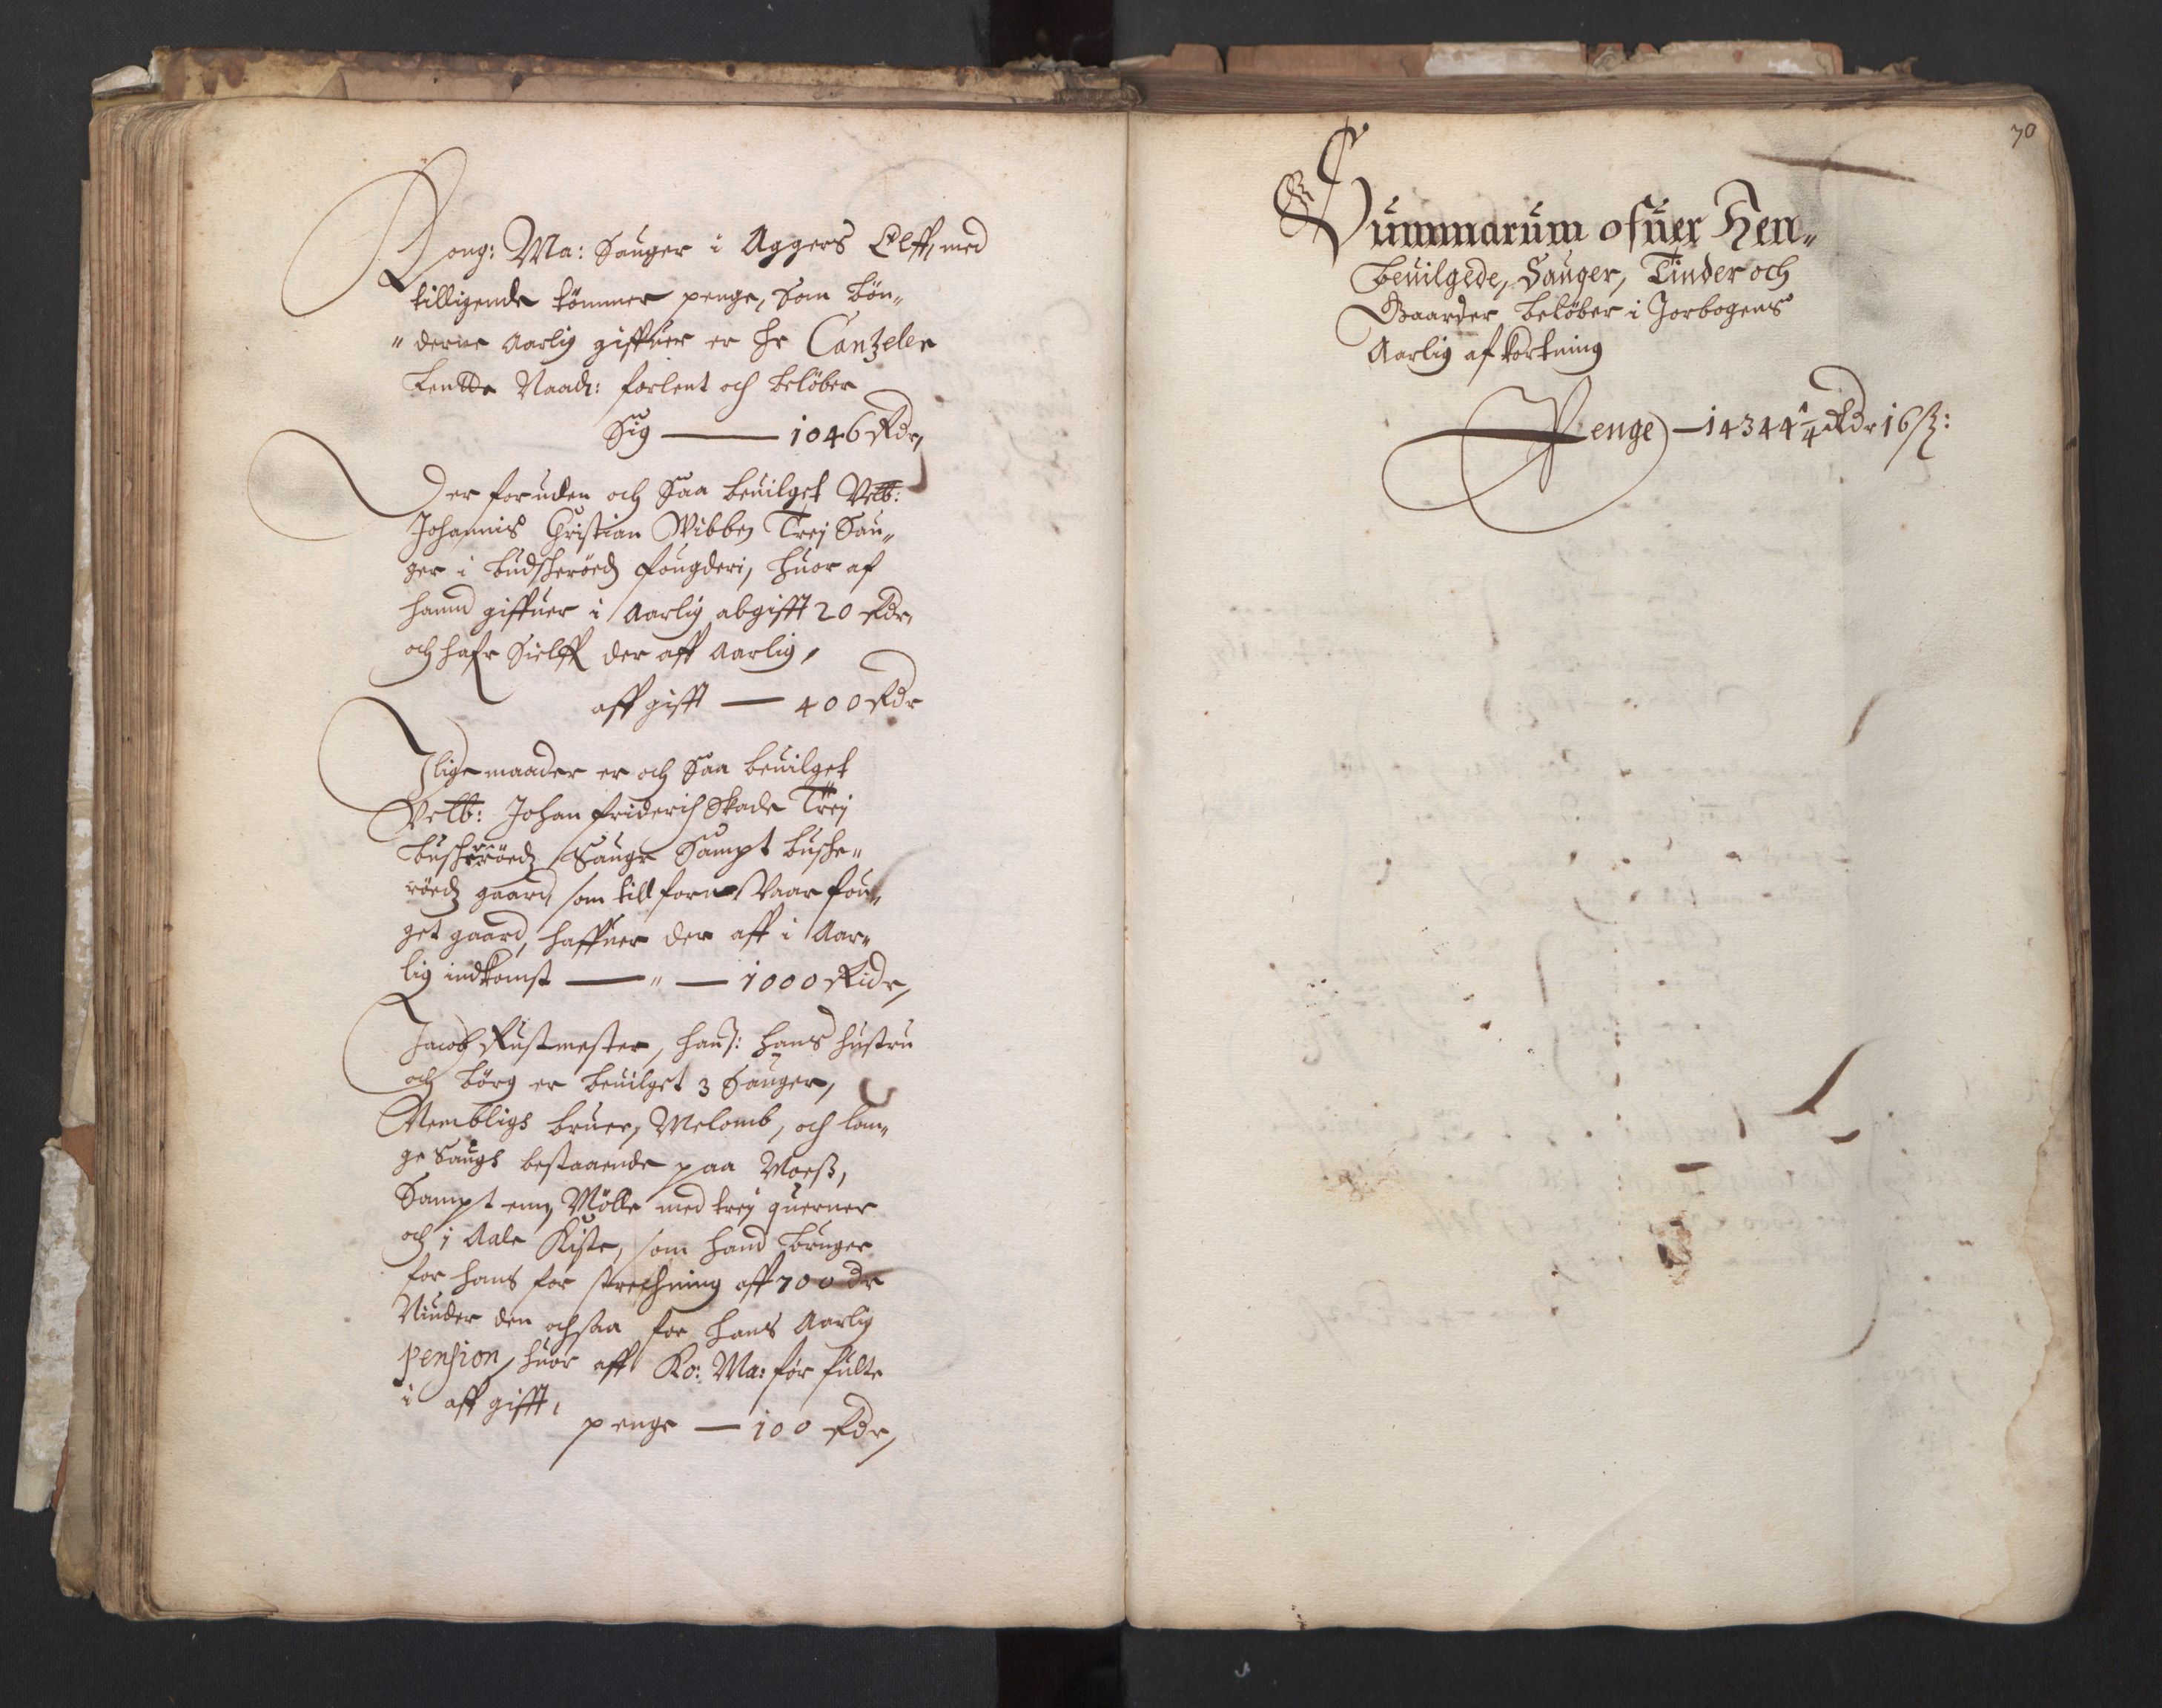 Kong: Ma: Sauger i Aggers Elff, med
tilligende tömmer penge, som bön„
„derne Aarlig giffuer er Hr Cantzeler
Naadi: forlent och belöber
Sig — 1046 Rdr,
Der foruden och Saa beuilget Velb:
Johannis Christian Wibbe Trej Sau„
ger i Budscheröed fougderi, huor af
hannd giffuer i Aarlig abgifft 20 Rdr,
och hafr Sielff der aff Aarlig,
aff gifft — 400 Rdr
I lige maader er och Saa beuilget
Velb: Johan friderich Skade Trej
Buscheröedz Sauge Sampt busche„
röedz gaard, som till forn Vaar fou„
get gaard, haffuer der aff i Aar„
lig indkomst — „ — 1000 Ridr,
Jacob Rustmester, hans hustru
och börn er beuilget 3 Sauger,
bruer, Melomb, och lan„
ge Saugs bestaaende paa Moess,
Sampt enn Mölle med trej querner
och 1 Aale Kiste, som hand bruger
for hans for strechning aff 700 dr
Niuder den ochsaa for hans Aarlig
pension, huor aff Ko: Ma: for fulte
i aff gifft,
penge — 100 Rdr,
70
Summarum ofuer Hen„
beuilgede, Sauger, Tinder och
Gaarder belöber i Jorbogens
Aarlig af kortning
Penge — 14344 1/4 Rdr 16 ß: